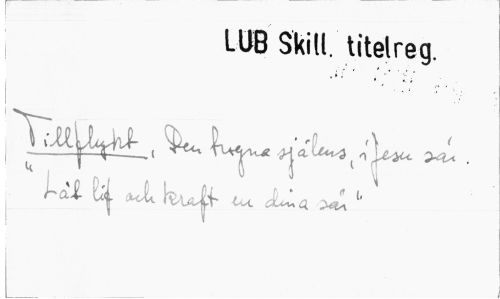 LUB Skill. titelreg.
Tillflykt, Den trogna själens, i Jesu sår.
"Låt lif och kraft en dina sår"